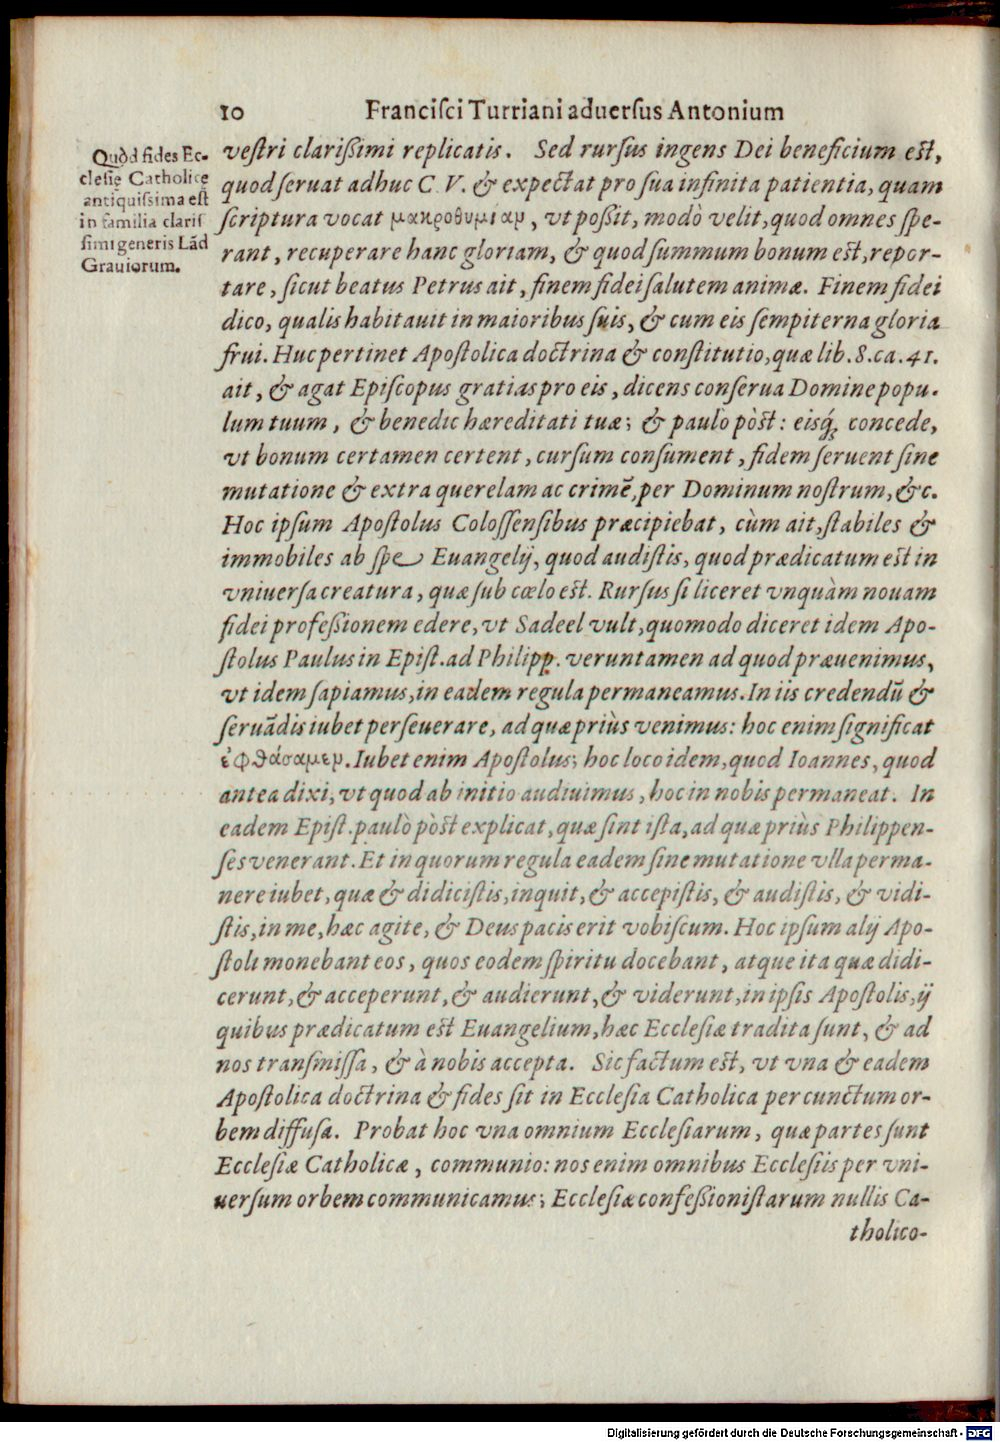 10 Franciſci Turriani aduerſus Antonium
Quòd fides Ec-
cleſię Catholicę
antiquiſsima eſt
in familia clariſ
ſimi generis Lãd
Grauiorum.
veſtri clarißimi replicatis. Sed rurſus ingens Dei beneficium eſt,
quod ſeruat adhuc C. V. & expectat pro ſua infinita patientia, quam
ſcriptura vocat μακροθυμίαν, vt poßit, modò velit, quod omnes ſpe-
rant, recuperare hanc gloriam, & quod ſummum bonum eſt, repor-
tare, ſicut beatus Petrus ait, finem fidei ſalutem animæ. Finem fidei
dico, qualis habitauit in maioribus ſuis, & cum eis ſempiterna gloria
frui. Huc pertinet Apoſtolica doctrina & conſtitutio, quæ lib. 8. ca. 41.
ait, & agat Epiſcopus gratias pro eis, dicens conſerua Domine popu-
lum tuum, & benedic hæreditati tuæ; & paulò pòſt: eisq́; concede,
vt bonum certamen certent, curſum conſument, fidem ſeruent ſine
mutatione & extra querelam ac crimẽ, per Dominum noſtrum, &c.
Hoc ipſum Apoſtolus Coloſſenſibus præcipiebat, cùm ait, ſtabiles &
immobiles ab ſpe Euangelij, quod audiſtis, quod prædicatum eſt in
vniuerſa creatura, quæ ſub cœlo eſt. Rurſus ſi liceret vnquàm nouam
fidei profeßionem edere, vt Sadeel vult, quomodo diceret idem Apo-
ſtolus Paulus in Epiſt. ad Philipp. veruntamen ad quod præuenimus,
vt idem ſapiamus, in eadem regula permaneamus. In iis credendũ &
ſeruãdis iubet perſeuerare, ad quæ priùs venimus: hoc enim ſignificat
ἐφθάσαμεν. Iubet enim Apoſtolus; hoc loco idem, quod Ioannes, quod
antea dixi, vt quod ab initio audiuimus, hoc in nobis permaneat. In
eadem Epiſt. paulò pòſt explicat, quæ ſint iſta, ad quæ priùs Philippen-
ſes venerant. Et in quorum regula eadem ſine mutatione vlla perma-
nere iubet, quæ & didiciſtis, inquit, & accepiſtis, & audiſtis, & vidi-
ſtis, in me, hæc agite, & Deus pacis erit vobiſcum. Hoc ipſum alij Apo-
ſtoli monebant eos, quos eodem ſpiritu docebant, atque ita quæ didi-
cerunt, & acceperunt, & audierunt, & viderunt, in ipſis Apoſtolis, ij
quibus prædicatum eſt Euangelium, hæc Eccleſiæ tradita ſunt, & ad
nos tranſmiſſa, & à nobis accepta. Sic factum eſt, vt vna & eadem
Apoſtolica doctrina & fides ſit in Eccleſia Catholica per cunctum or-
bem diffuſa. Probat hoc vna omnium Eccleſiarum, quæ partes ſunt
Eccleſiæ Catholicæ, communio: nos enim omnibus Eccleſiis per vni-
uerſum orbem communicamus; Eccleſiæ confeßioniſtarum nullis Ca-
tholico-
Digitalisierung gefördert durch die Deutsche Forschungsgemeinschaft - DFG